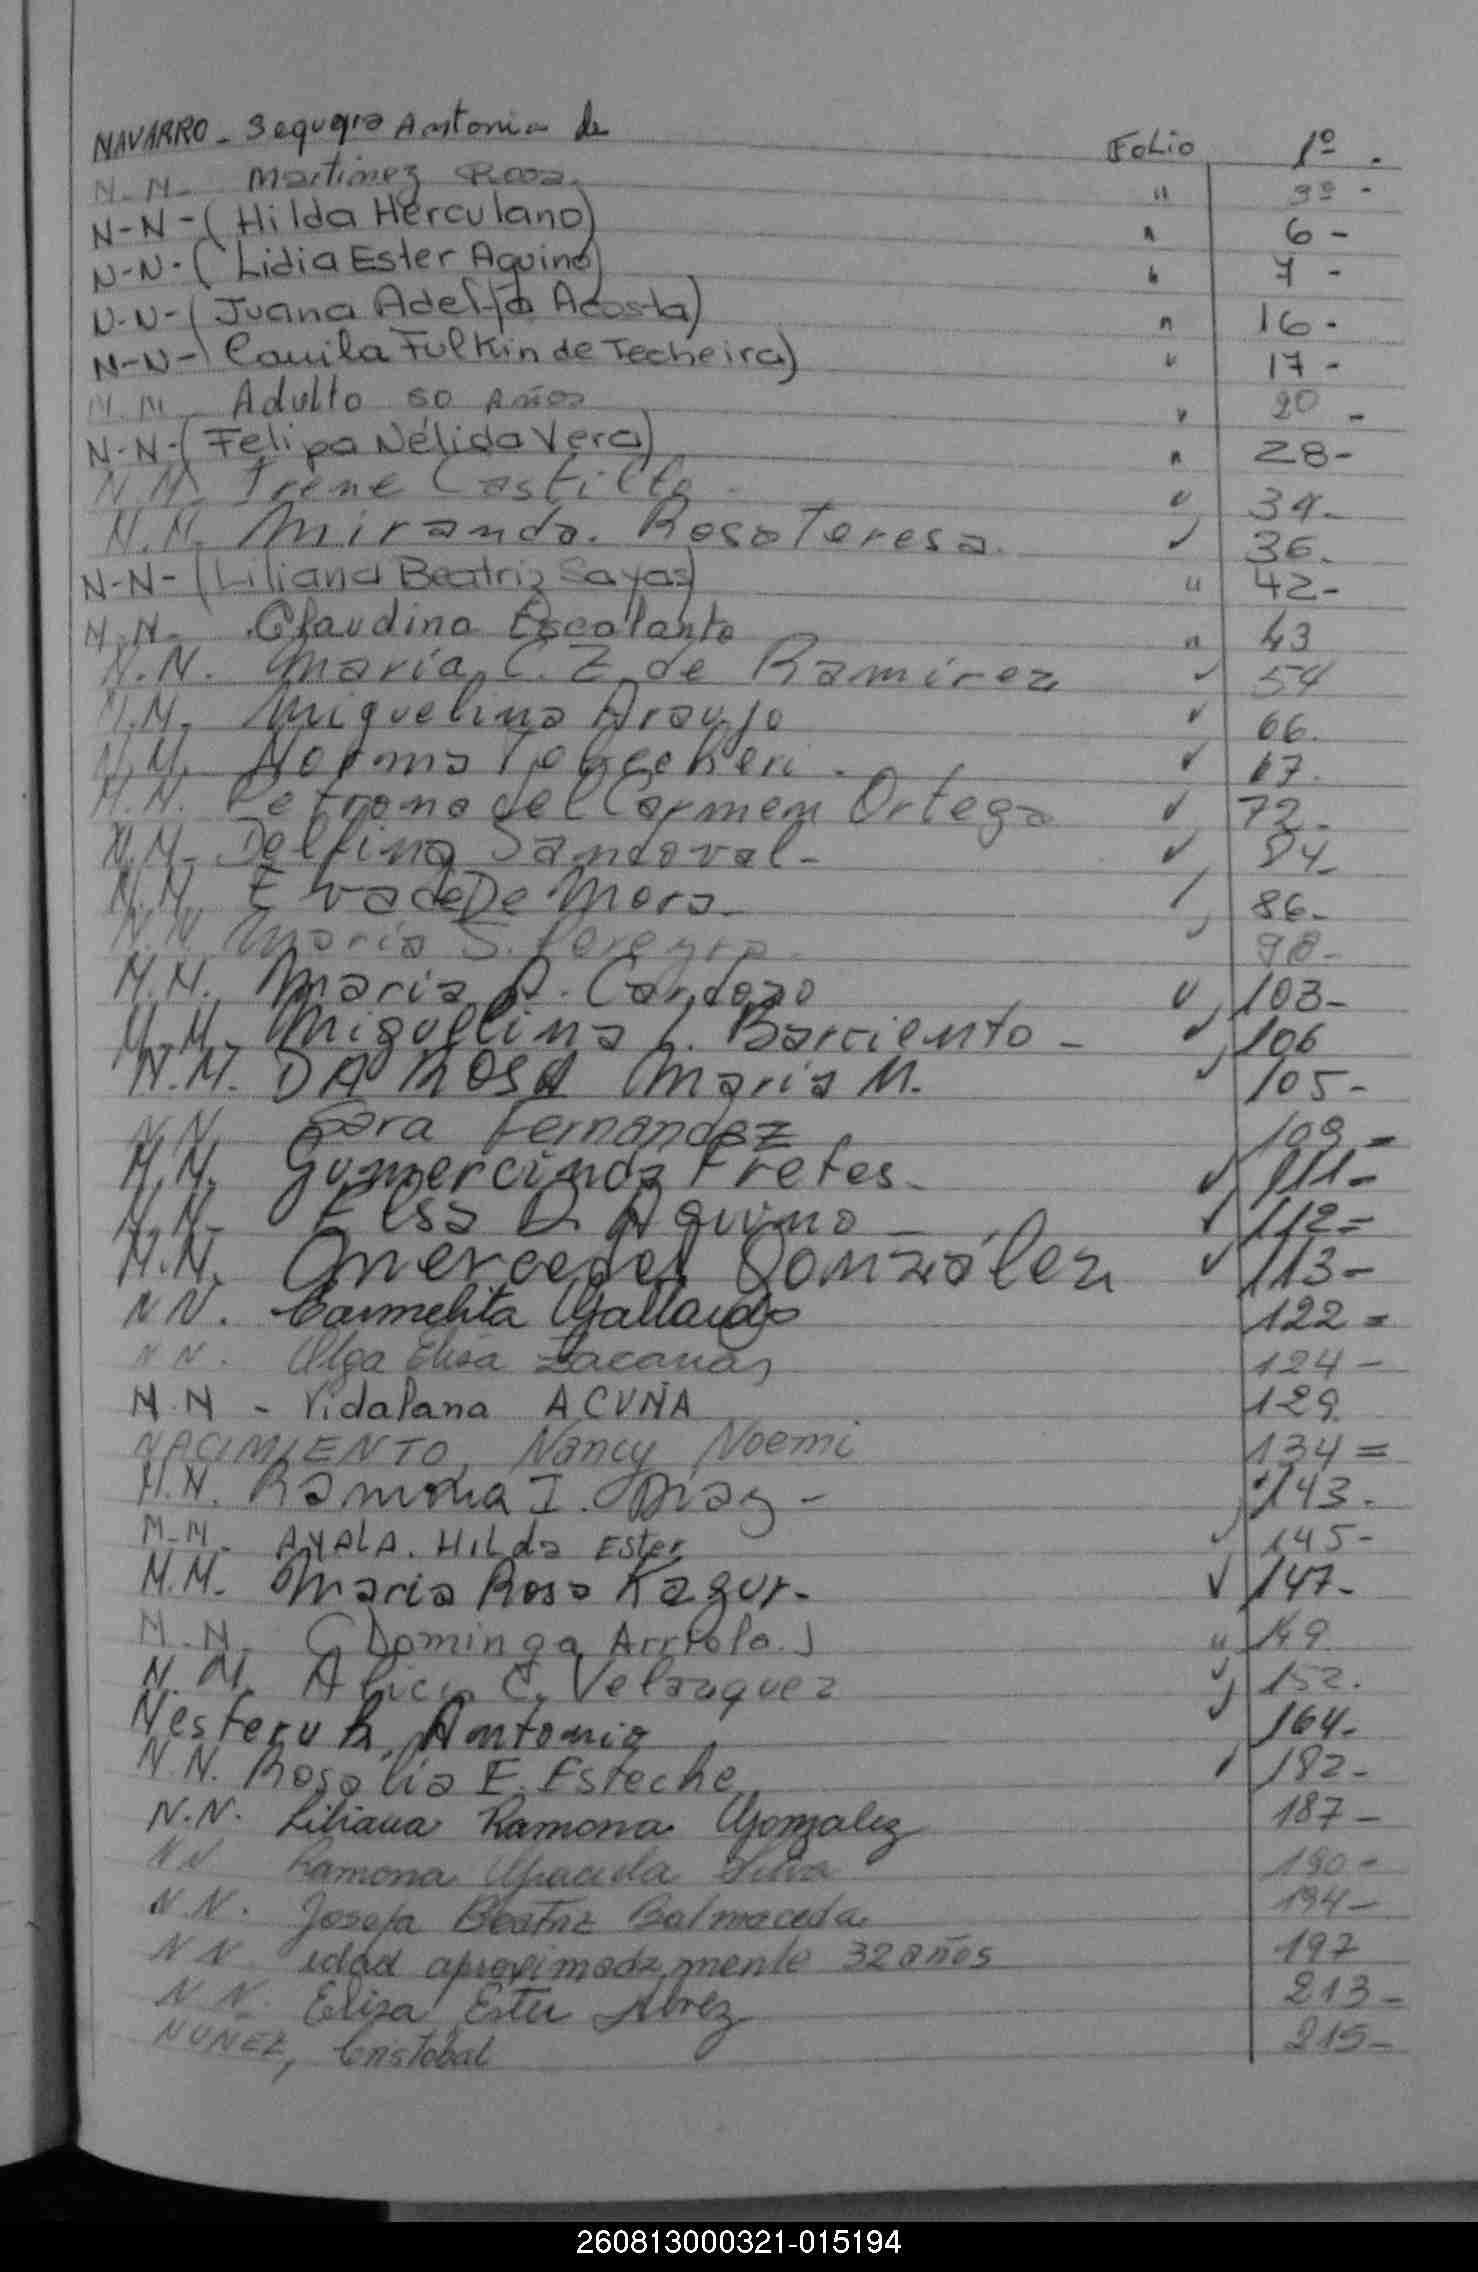 NAVARRO - Sequeira Antonia de Folio 1º -
N-N- Martinez Rosa. " 3º -
N-N-(Hilda Herculano) " 6 -
N-N-(Lidia Ester Aquino) " 7 -
N-N-(Juana Adelfa Acosta) " 16 -
N-N-(Camila Fulkin de Techeira) " 17 -
N.N. Adulto 50 Años " 20 -
N-N-(Felipa Nélida Vera) " 28 -
N.N. Irene Castillo - " 34 -
N.N. Miranda. Rosa Teresa. " 36 -
N-N-(Liliana Beatriz Sayas) " 42 -
N.N- Claudina Escalante " 43
N.N. María C. Z. de Ramírez " 54
N.N. Miguelina Araujo " 66.
N.N. Norma " 67.
N.N. Petrona del Carmen Ortega " 72 -
N.N- Delfina Sandoval - " 84 -
N.N. De Mora - " 86 -
N.N. María S. Pereyra - " 98 -
N.N. María R. Cardozo " 103 -
N.N- Miguelina L. Barriento - " 106
N.N. DA ROSA María M. " 105 -
N.N. Sara Fernandez 109 =
N.N. Gumercinda Fretes - " 111 -
N.N- Elsa D. Aquino - " 112 =
N.N. Mercedes González " 113 -
N N. Carmelita Gallardo 122 =
N N. Olga Elisa Zacarias 124 -
N.N - Vidalana ACUÑA 129
NACIMIENTO, Nancy Noemi 134 =
N.N. Ramona I. Diaz - 143 -
N-N- AYALA. Hilda Ester " 145 -
N.N. María Rosa Kazur - " 147 -
N.N- (Dominga Arriola.) " 149
N.N. Alicia C. Velazquez " 152.
Nesteruk, Antonio " 164 -
N.N. Rosalía E. Esteche " 182 -
N.N. Liliana Ramona Gonzalez 187 -
N N Ramona Graciela Silva 190 -
N.N. Josefa Beatriz Balmaceda 194 -
N N. edad aproximadamente 32 años 197
N N. Eliza Ester 213 -
NUÑEZ, Cristobal 215 -
260813000321-015194